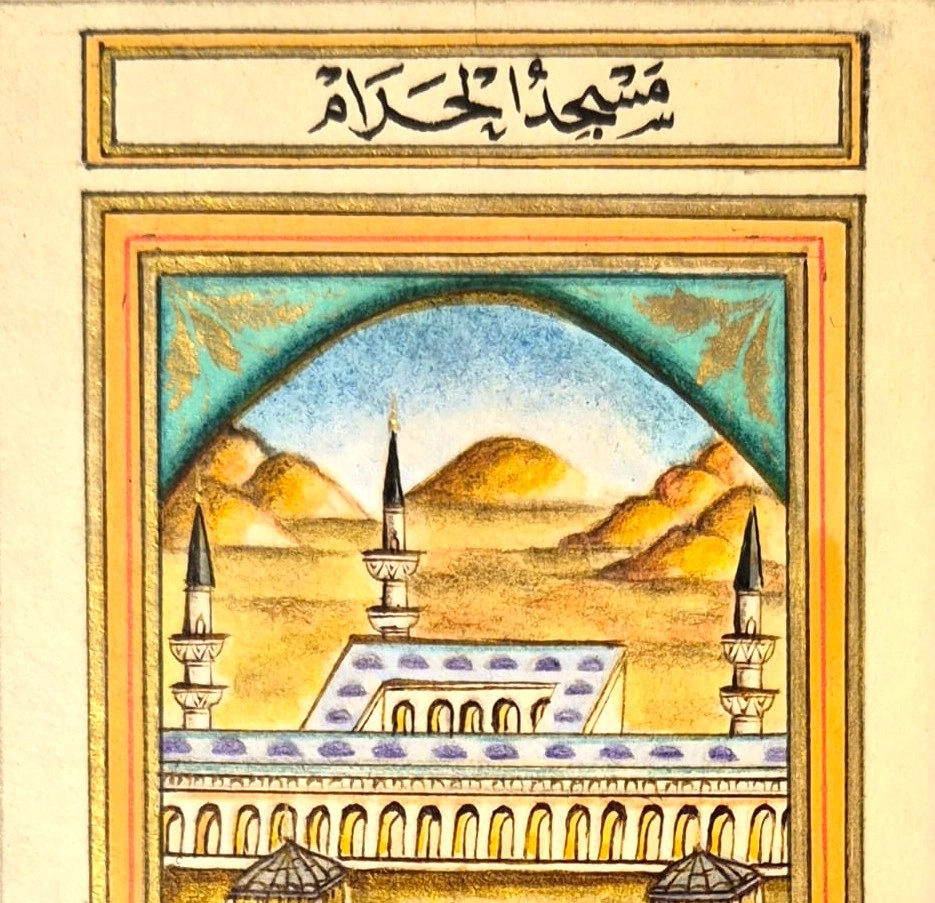 مَسْجِدُ الحَرَامْ